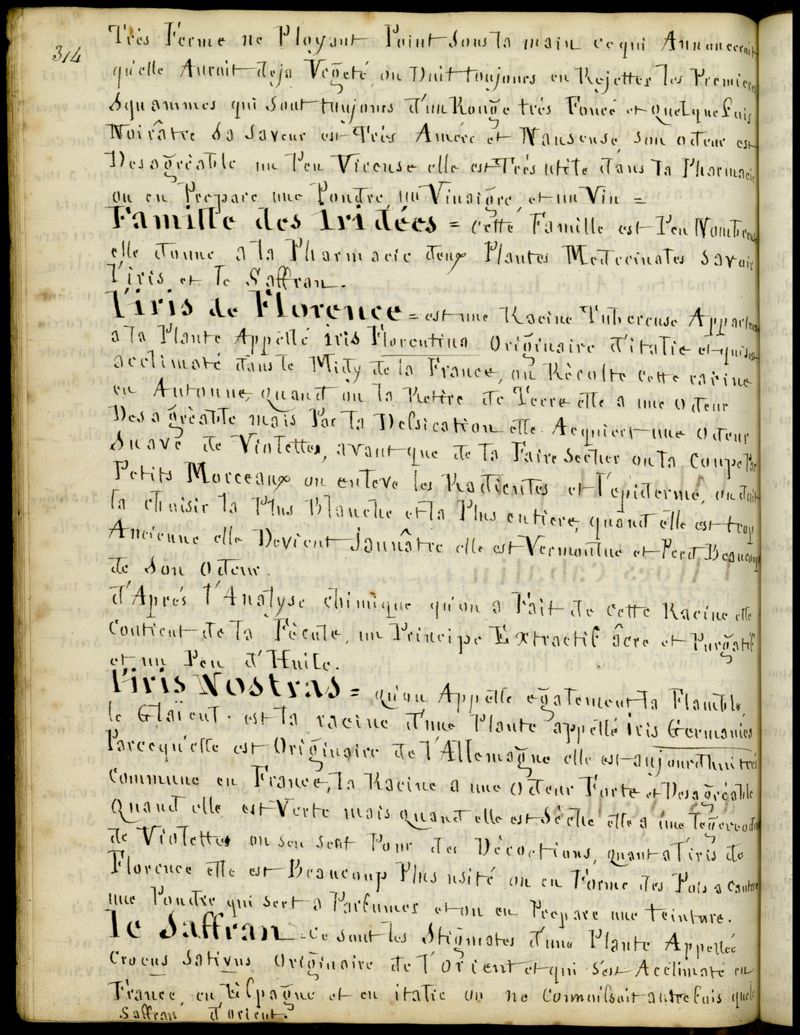 314
Très Ferme ne Ployant Point Sous la main ce qui Annoncerait
qu'elle Aurait deja Vegeté, on Doit toujours en Rejetter les Premieres
Squammes qui sont toujours d'un Rouge très Foncé et quelquefois
Noirâtre Sa Saveur est Très Amere et Nauseuse son odeur est
Desagréable un Peu Vireuse elle est Très utile dans la Pharmacie
on en Prepare une Poudre, un Vinaigre et un Vin =
Famille des Iridées = Cette Famille est Peu Nombreuse
elle donne a la Pharmacie deux Plantes Medecinales Savoir
l'iris et le Saffran.
l'iris de Florence = est une Racine Tubereuse Appart
a la Plante Appellé iris Florentina Originaire d'italie et qui s'est
acclimaté dans le Midy de la France, on Récolte cette racine
en Automne, quand on la Retire de Terre elle a une odeur
Desagréable mais Par la Dessication elle Acquiert une Odeur
Suave de Violettes, avant que de la Faire Secher on la Coupe Par
Petits Morceaux on enleve les Radicules et l'epiderme, on doit
la choisir la Plus Blanche et la Plus entiere, quand elle est trop
Ancienne elle Devient Jaunâtre elle est Vermoulue et Perd Beaucoup
de Son Odeur.
d'Aprés l'Analyse chimique qu'on a Fait de cette Racine elle
Contient de la Fécule, un Principe Extractif âcre et Purgatif
et un Peu d'Huile.
l'iris Nostras = qu'on Appelle egalement la Flambe,
le Glaieul. est la racine d'une Plante appellé iris Germanica
Parcequ'elle est Originaire de l'Allemagne elle est aujourdhui très
Commune en France, la Racine a une odeur Forte et Desagréable
Quand elle est Verte mais quand elle est Séche elle a une legere odeur
de Violettes on s'en sert Pour des Décoctions, quant a l'iris de
Florence elle est Beaucoup Plus usité on en Forme des Pois a Cautere
une Poudre qui sert a Parfumer et on en Prepare une teinture.
le Saffran = Ce sont les Stigmates d'une Plante Appellée
Crocus Sativus Originaire de l'Orient et qui S'est Acclimaté en
France, en Espagne et en italie on ne Connoissoit autrefois que le
Saffran d'orient.